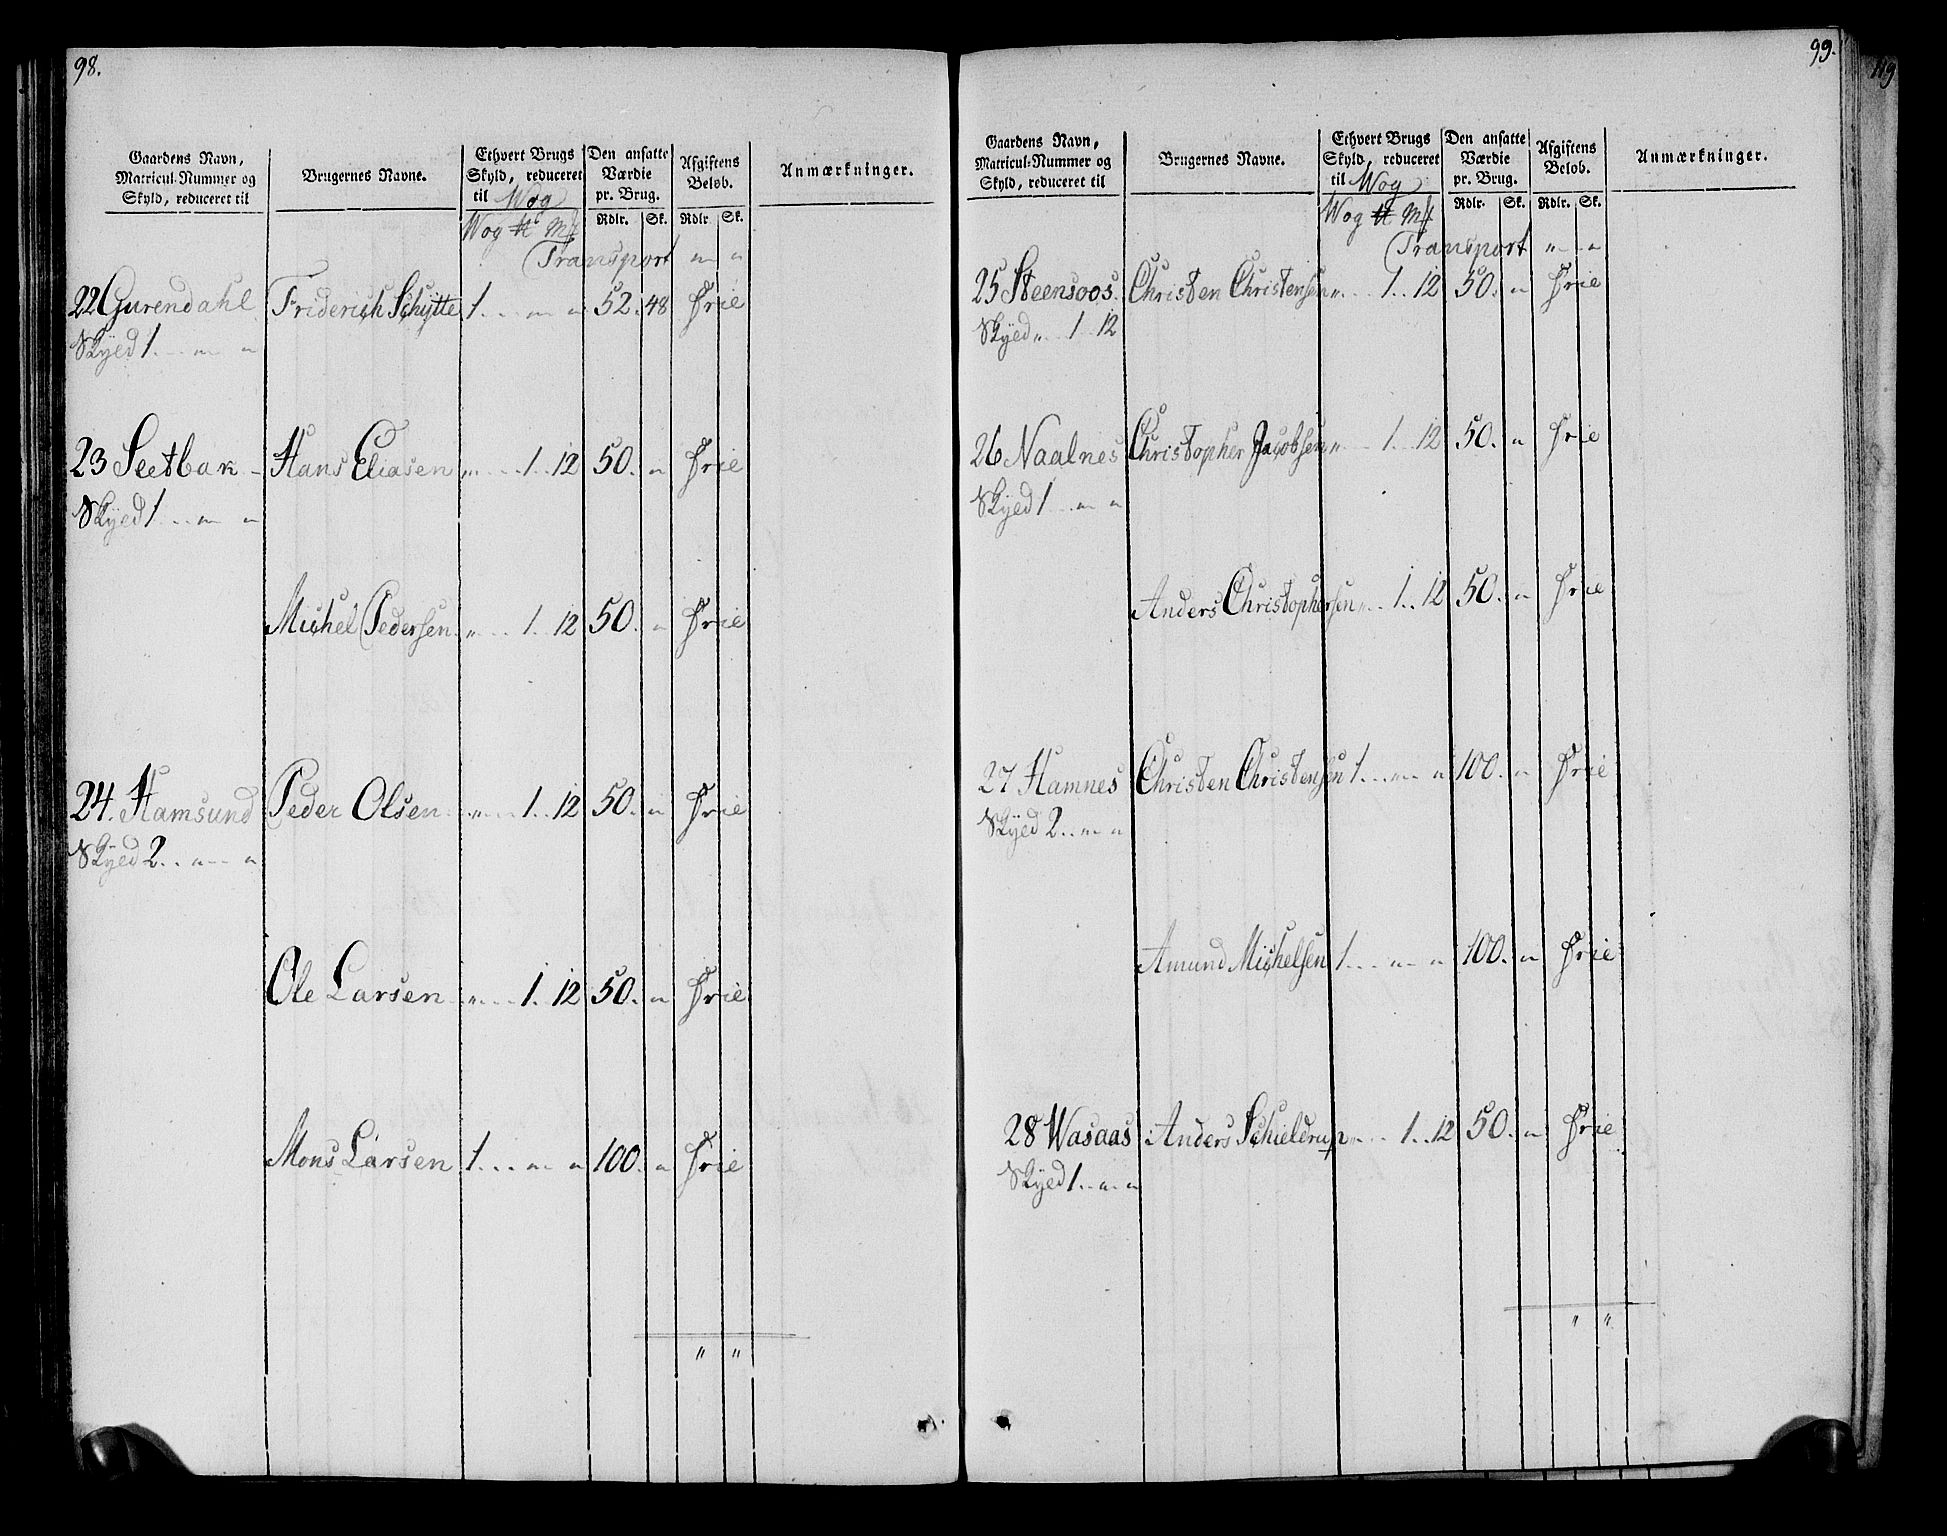 98.
Gaardens Navn, Matricul-Nummer og Skyld, reduceret til | Brugernes Navne. | Ethvert Brugs Skyld, reduceret til Wog | Den ansatte Værdie pr. Brug. | Afgiftens Beløb. | Anmærkninger.
Wog ℔ Mk | Rdlr. | Sk. | Rdlr | Sk.
Transport " "
22 Gurendahl Friderich Schytte 1 . . " " 52. 48 Frie
Skyld 1 . . " "
23 Seetbak Hans Eliasen " . . 1 . . 12 50. " Frie
Skyld 1 . . " "
Michel Pedersen " . . 1 . . 12 50. " Frie
24. Hamsund Peder Olsen " . . 1 . . 12 50. " Frie
Skyld 2 . . " "
Ole Larsen " . . 1 . 12 50. " Frie
Mons Larsen 1 . . . " " 100. " Frie
" "
99.
Gaardens Navn, Matricul-Nummer og Skyld, reduceret til | Brugernes Navne. | Ethvert Brugs Skyld, reduceret til Wog | Den ansatte Værdie pr. Brug. | Afgiftens Beløb. | Anmærkninger.
Wog ℔ Mk | Rdlr. | Sk. | Rdlr. | Sk.
Transport " "
25 Steensoos Christen Christensen " . . 1 . . 12 50. " Frie
Skyld " . . 1 . . 12
26 Naalnes Christopher Jacobsen " . . 1 . . 12 50. " Frie
Skyld 1 . . " "
Anders Christophersen " . . 1 . . 12 50. " Frie
27 Hamnes Christen Christensen 1 . . . " " 100. " Frie
Skyld 2 . . " "
Amund Michelsen 1 . . . " " 100. " Frie
28 Wasaas Anders Schieldrup " . . 1 . . 12 50. " Frie
Skyld 1 . . " "
" "